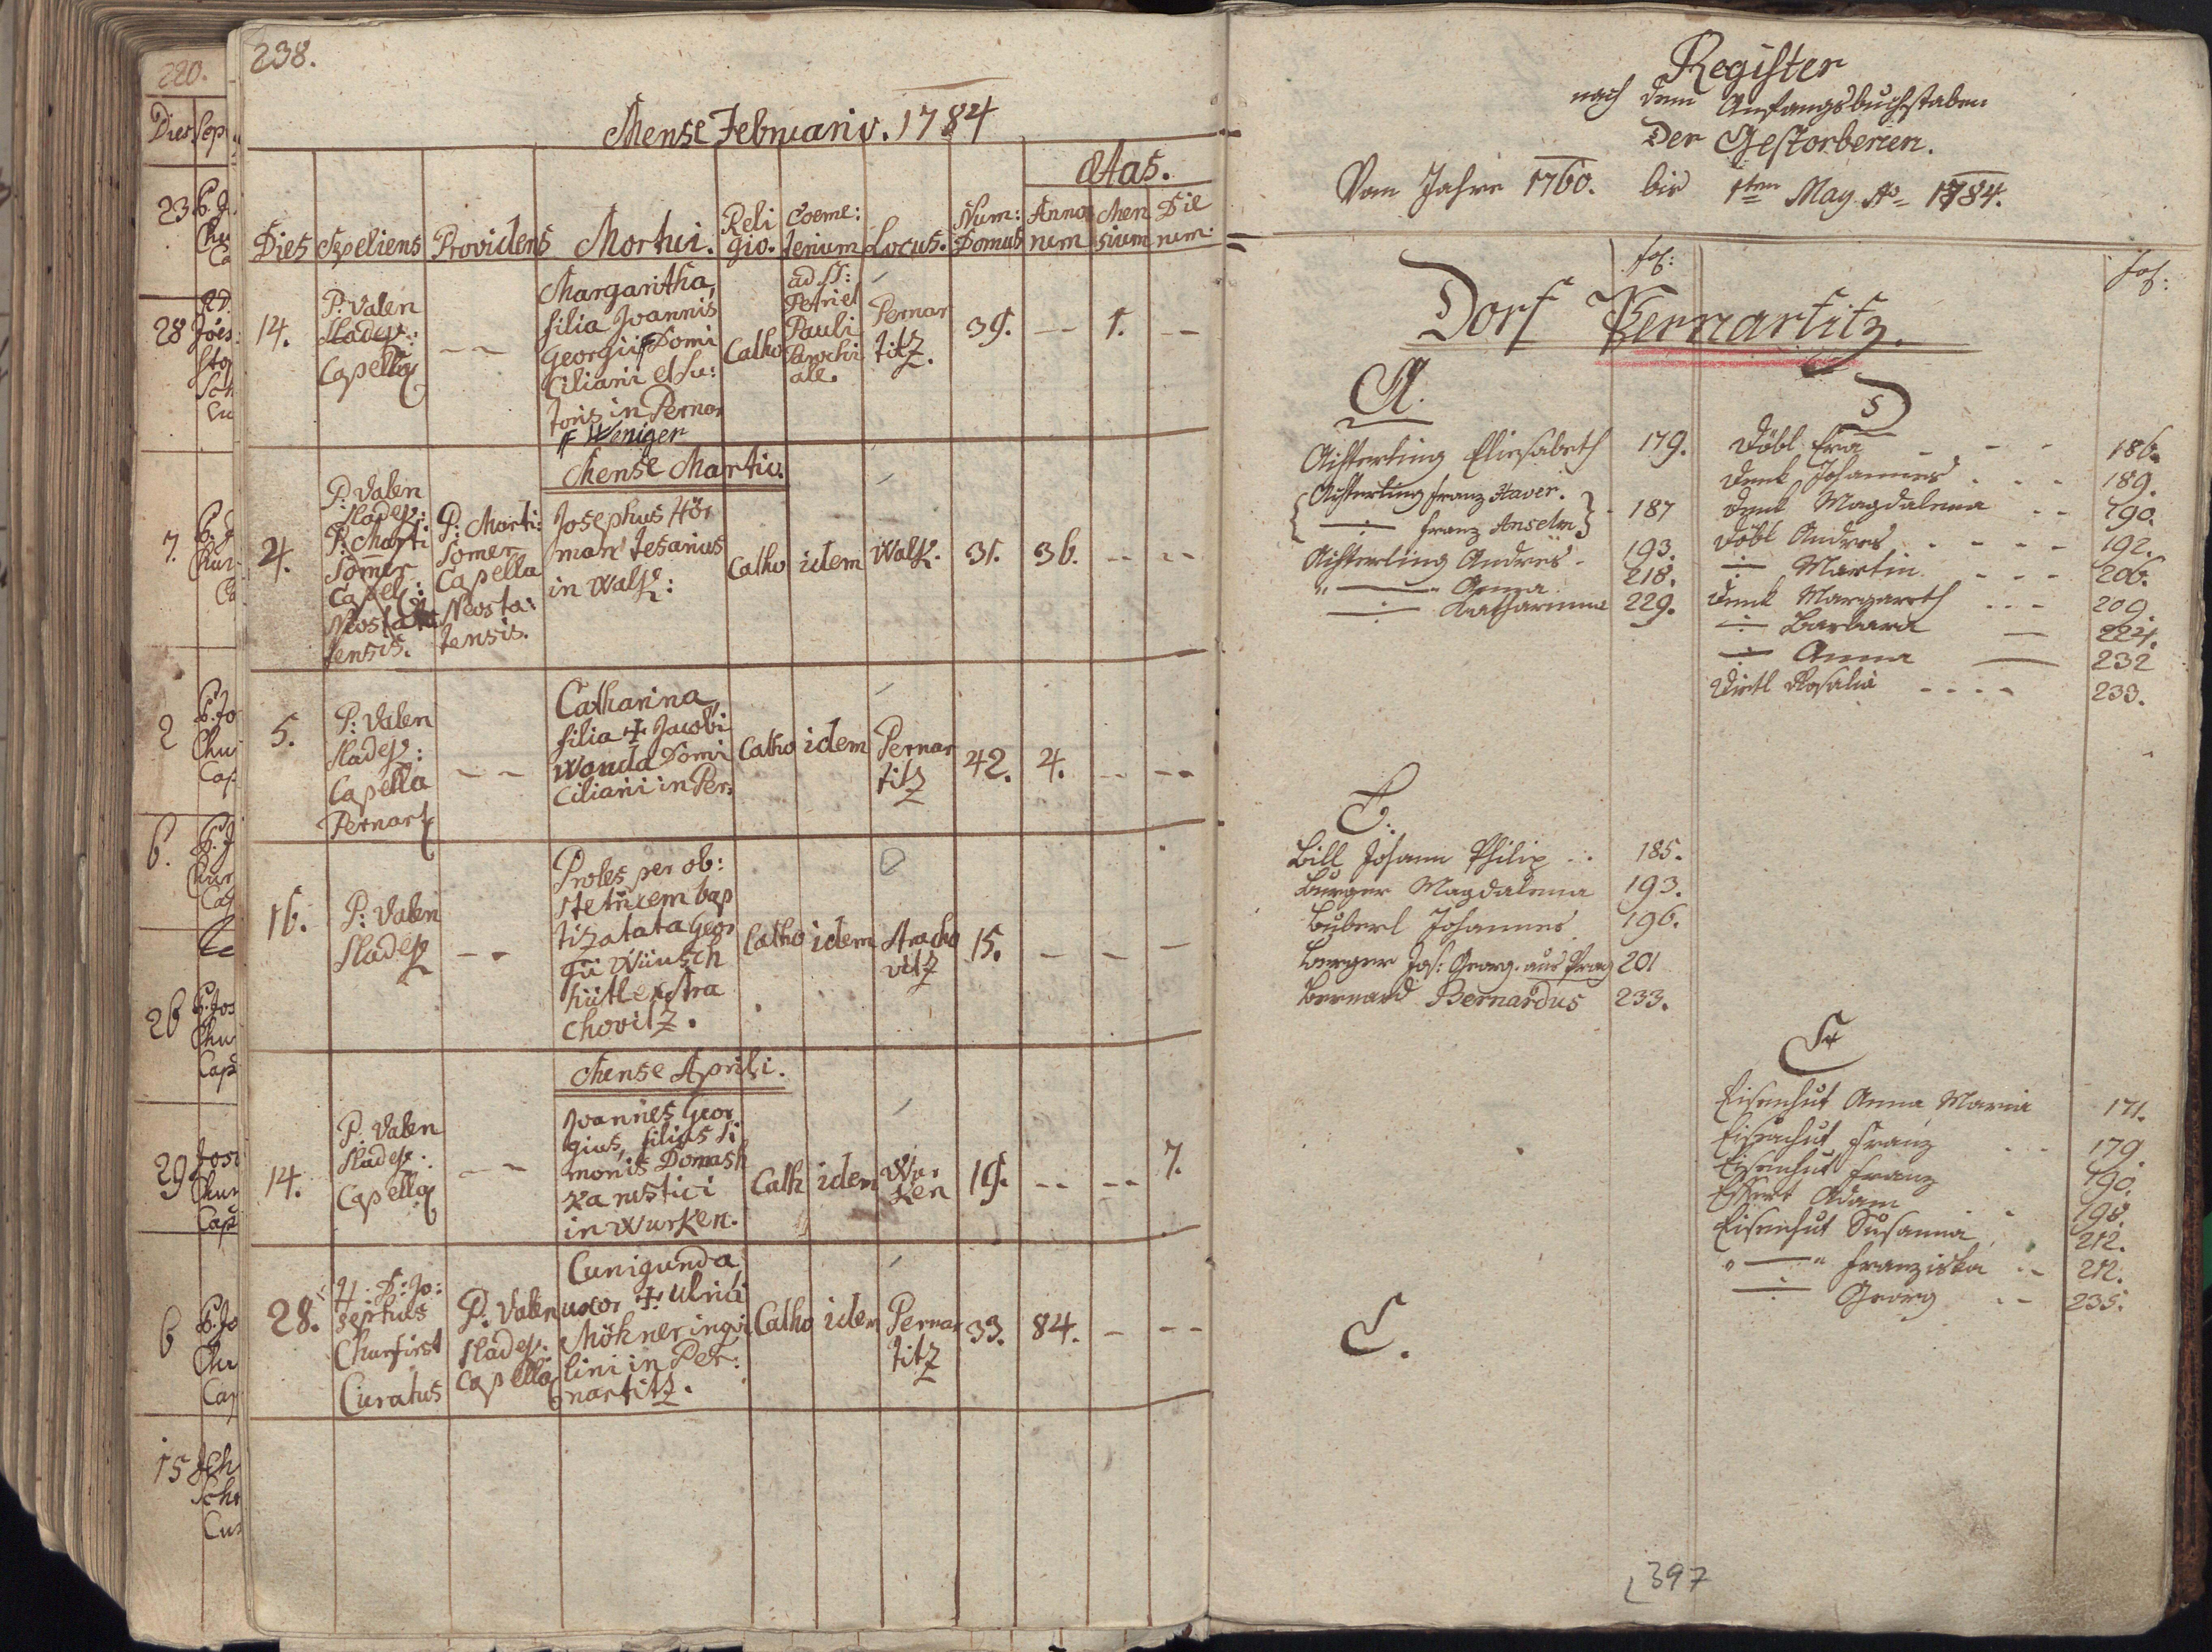 220.
Dies Sep
23
28
7.
2
6.
26
29
6
15
238.
Mense Februario. 1784
Ætas.
Dies Sepeliens Providens Mortui. Reli gio. Coeme: terium Locus. Num: Domus Anno num Men sium Die rum.
14.
P. Valen
Sladeꝶ:
Capella
— —
Margaritha,
filia Joannis
Georgii # Domi
ciliarii et Su:
toris in Pernar
# Weniger
Catho
ad SS:
Petri et
Pauli
Parochi
ale.
Pernar
titz.
39. — 1. —
Mense Martio.
4.
P. Valen
Sladeꝶ:
P. Marti
Somer
Capel:
Neosta
tensis.
P. Marti:
Somer
Capella
Neosta:
tensis.
Josephus Hör
man Tesarius
in Walꝶ:
Catho idem Walꝶ. 31. 36. -- --
5.
P: Valen
Sladeꝶ:
Capella
Pernart
— —
Catharina,
filia ✝ Jacobi
Wonda Domi
ciliarii in Per:
Catho idem Pernar
titz
42. 4. -- --
16.
P: Valen
Sladeꝶ
— -
Proles per ob:
stetricem bap
tizatata Geor
gii Wünsch
hütl ex Stra
chovitz.
Catho idem Stracho
vitz
15. - - —
Mense Aprili.
14.
P. Valen
Sladeꝶ:
Capella
— —
Joannes Geor
gius, filius Si
monis Domash
ka rustici
in Wurken.
Cath idem Wur
ken
19. -- -- 7.
28.
P: D: Jo:
sephus
Churfirst
Curatus
P. Valen
Sladeꝶ.
Capella
Cunigunda
uxor ✝ Ulrici
Mökner inqvi
lini in Per:
nartitz.
Catho idem Pernar
titz
33. 84. — --
Register
nach dem Anfangsbuchstaben
Der Gestorbenen.
Vom Jahre 1760. bis 1ten May Ao 1784.
fol: fol:
Dorf Pernartitz.
A.
Aichterling Eliesabeth 179.
Aichterling Franz Xaver.
—:— Franz Anselm 187
Aichterling Andres - 193.
" — " Anna 218.
—:— Katharina 229.
B.
Bill Johann Philip .. 185.
Burger Magdalena 193.
Buberl Johannes 196.
Burger Joh: Georg. aus Prag 201
Bernard Bernardus 233.
C.
D
Döbl Eva - - 186.
Denk Johannes - - - 189.
Denk Magdalena - - 190.
Döbl Andres - - - - 192.
—:— Martin - - - 206.
Denk Margareth - - - 209.
—:— Barbara — 224.
—:— Anna — 232
Dietl Rosalia - - - - 233.
E
Eisenhut Anna Maria 171.
Eisenhut Franz - - - 179.
Eisenhut Franz 190.
Essert Adam - 198.
Eisenhut Susanna 212.
" — " Franziska - - 212.
—:— Georg - - 235.
397